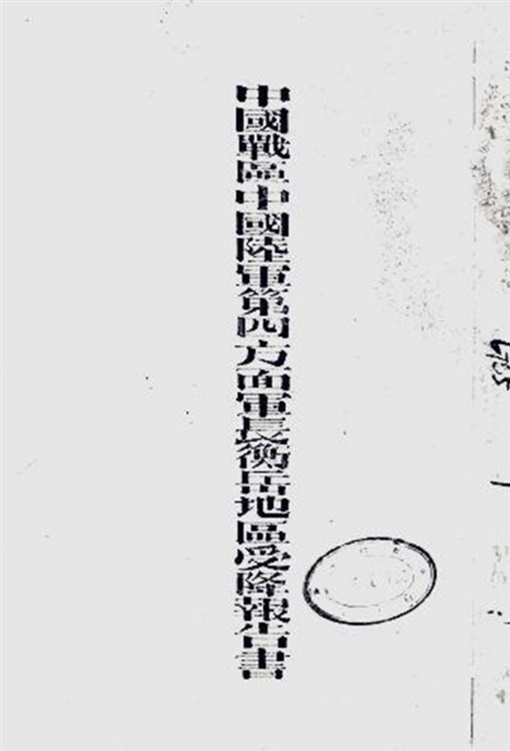 中國戰區中國陸軍第四方面軍長衡岳地區受降報告書